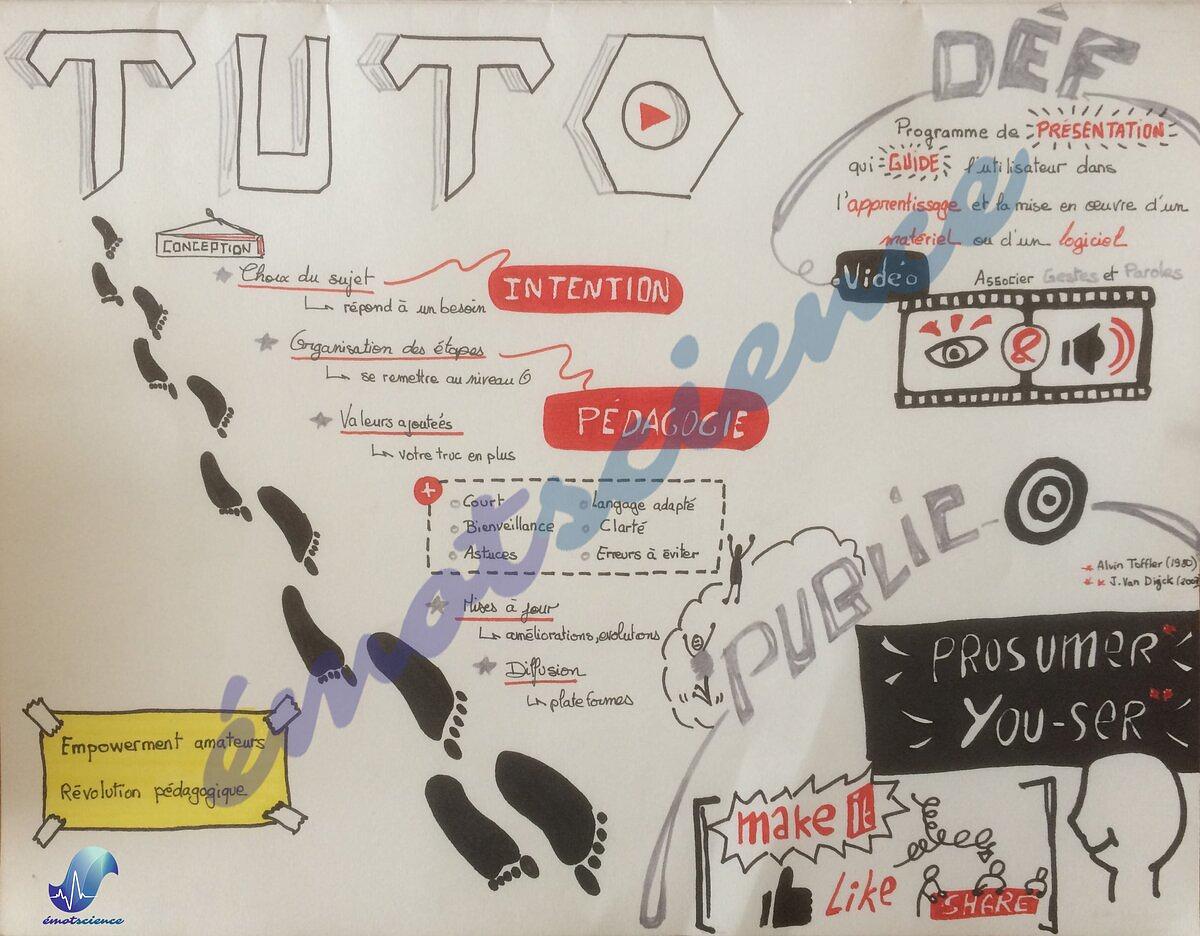 TUTO
DÉF
Programme de PRÉSENTATION
qui GUIDE l'utilisateur dans
l'apprentissage et la mise en œuvre d'un
matériel ou d'un logiciel
Vidéo
Associer Gestes et Paroles
&
CONCEPTION
Choix du sujet
répond à un besoin
INTENTION
Organisation des étapes
se remettre au niveau 0
PÉDAGOGIE
Valeurs ajoutées
votre truc en plus
+
Court
Langage adapté
Bienveillance
Clarté
Astuces
Erreurs à éviter
Mises à jour
améliorations, evolutions
Diffusion
plateformes
PUBLIC
* Alvin Toffler (1980)
** J. Van Dijck
PROSUMER*
YOU-SER**
make it
Like
SHARE
Empowerment amateurs
Révolution pédagogique
émotscience
émotscience